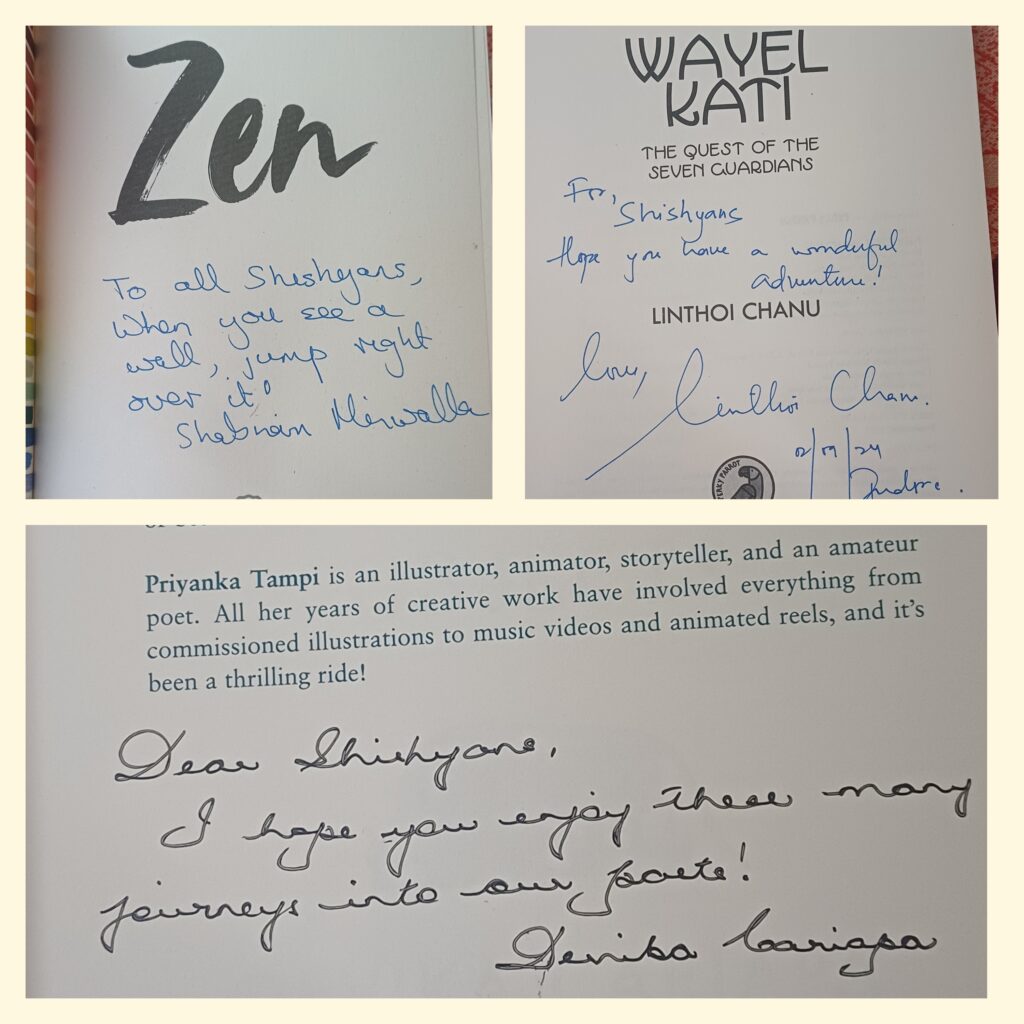 Zen
To all Sheshyans,
When you see a
wall, jump right
over it!
Shabnam Minwalla
WAYEL
KATI
THE QUEST OF THE
SEVEN GUARDIANS
For,
Shishyans
Hope you have a wonderful
adventure!
LINTHOI CHANU
Love,
Linthoi Chanu.
02/09/24
PERKY PARROT
Priyanka Tampi is an illustrator, animator, storyteller, and an amateur
poet. All her years of creative work have involved everything from
commissioned illustrations to music videos and animated reels, and it's
been a thrilling ride!
Dear Shishyans,
I hope you enjoy these many
journeys into our pasts!
Devika Cariapa